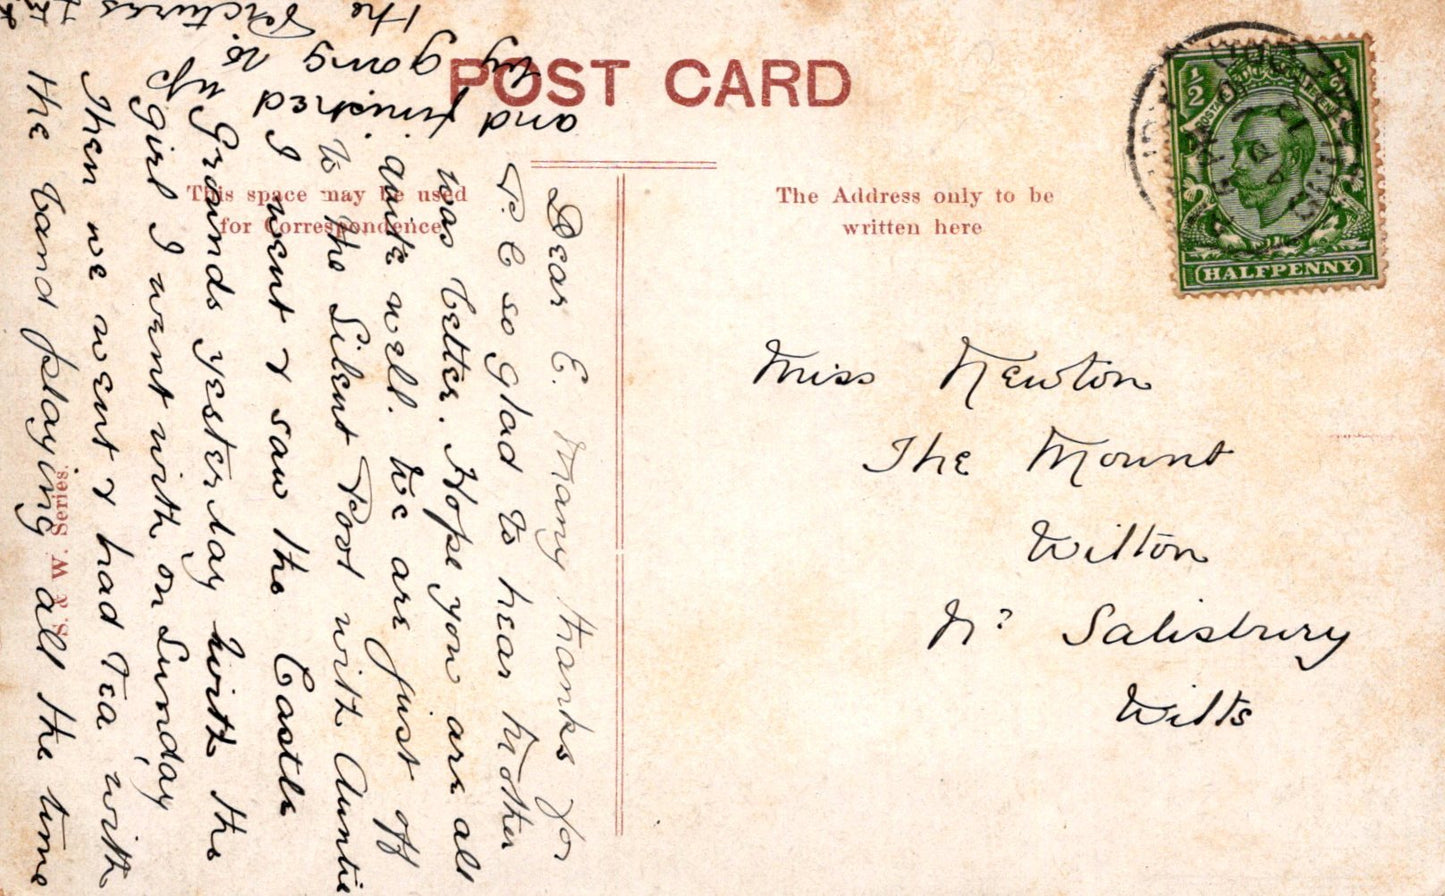 POST CARD
This space may be used
for Correspondence
The Address only to be
written here
½
½
HALFPENNY
GUILDFORD
13
Miss Newton
The Mount
Wilton
Nr Salisbury
Wilts
Dear E. Many thanks for
P.C so glad to hear Mother
was better. Hope you are all
quite well. We are just off
to the Silent Pool with Auntie
I went & saw the Castle
Grounds yesterday with the
girl I went with on Sunday
Then we went & had Tea with
the band playing all the time
and finished
up
by going to
the Pictures
S. & W. Series.